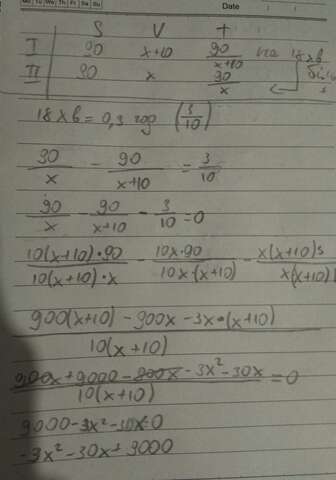 Mo Tu We Th Fr Sa Su Date
S V t
I 90 x+10 90/(x+10) на 18 хв
II 90 x 90/x
18 хв = 0,3 год (3/10)
90/x - 90/(x+10) = 3/10
90/x - 90/(x+10) - 3/10 = 0
10(x+10)·90/10(x+10)·x - 10x·90/10x·(x+10) - x(x+10)3/x(x+10)
900(x+10) - 900x - 3x·(x+10)
10(x+10)
900x + 9000 - 900x - 3x² - 30x = 0
10(x+10)
9000 - 3x² - 30x = 0
-3x² - 30x + 9000